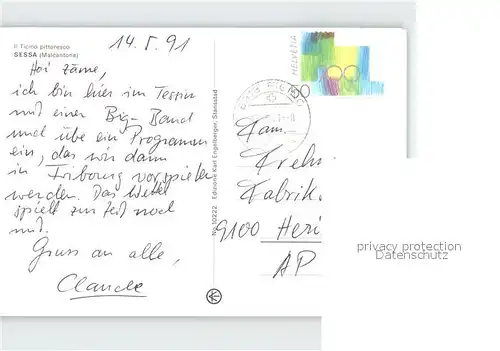 Il Ticino pittoresco
SESSA (Malcantone)
14.5.91
Hoi zäme,
ich bin hier im Tessin
mit einer Big-Band
und übe ein Programm
ein, das wir dann
in Fribourg vorspielen
werden. Das Wetter
spielt zur Zeit noch
mit.
Gruss an alle,
Claude
No. 10222 Edizione Karl Engelberger, Stansstad
HELVETIA
Fam.
Krehs
Fabrik.
9100 Heri
AP
privacy protection
Datenschutz